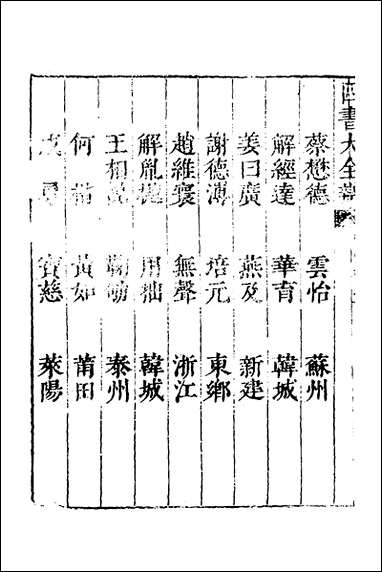 四書大全辯
蔡懋德 雲怡 蘇州
解經達 華育 韓城
姜曰廣 燕及 新建
謝德溥 培元 東鄉
趙維寰 無聲 浙江
解胤樾 用拙 韓城
王相說 鞠劬 泰州
何 黃如 莆田
寶慈 萊陽